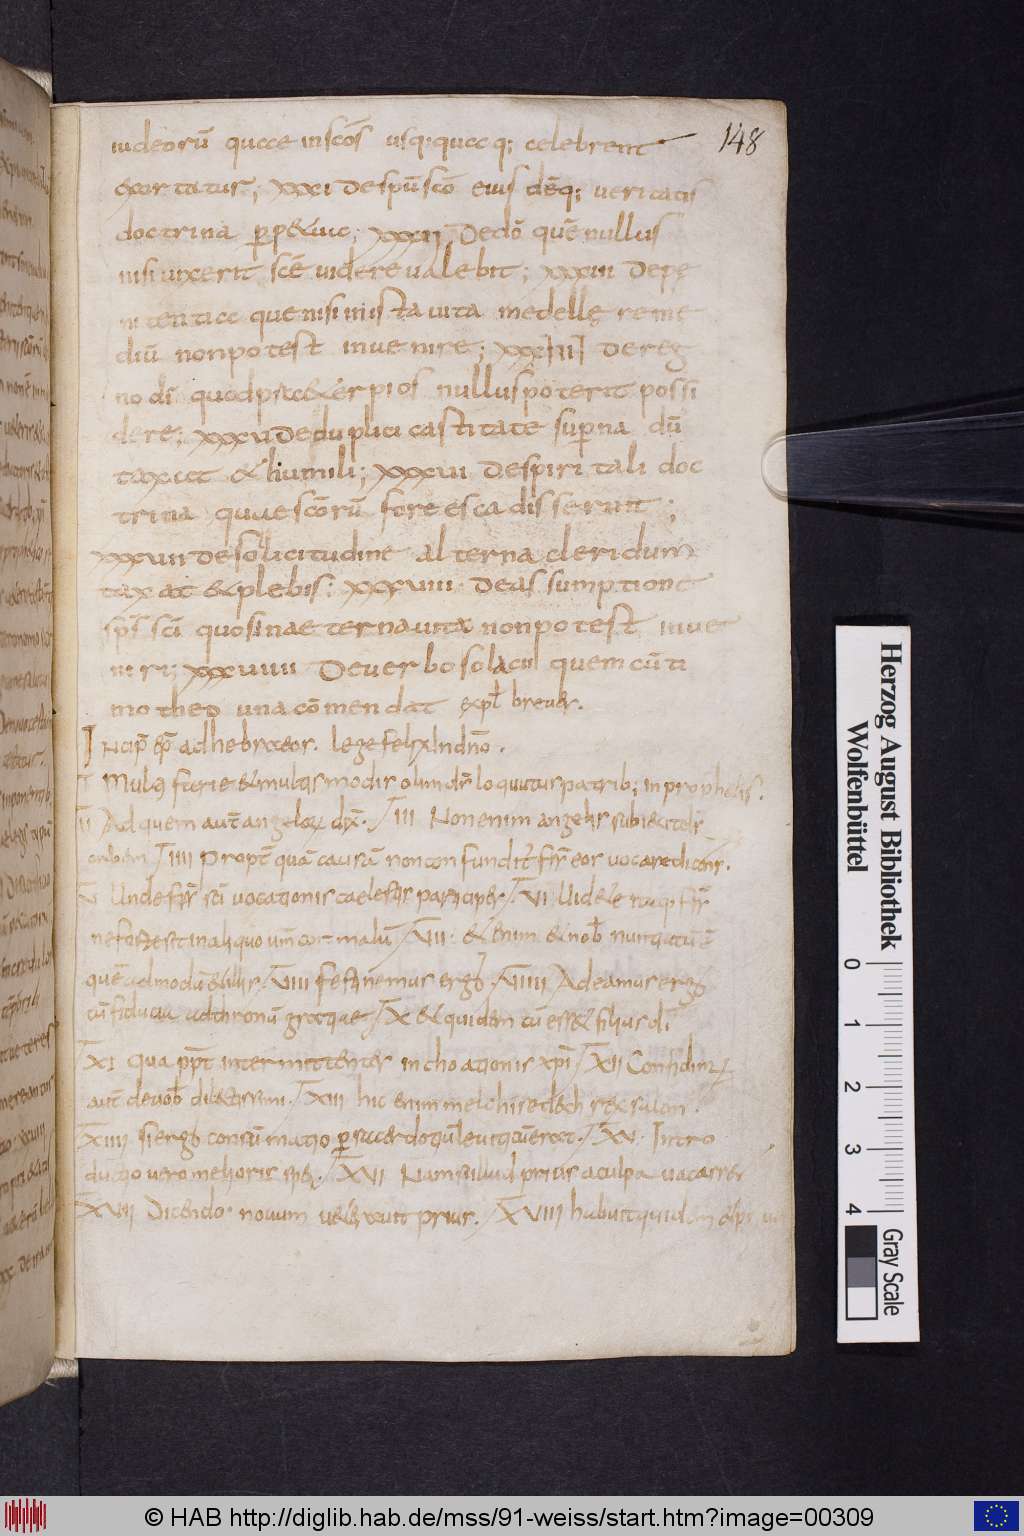 148
iudeorū quae in scōs usq; quaq; celebrent
exortatur; xxxi De spū scō eius dēq; veritatis
doctrina perpetuę; xxxii De dō quē nullus
nisi vixerit scē videre valebit; xxxiii De pę
nitentia que nisi in ista vita medellę reme
diū non potest invenire; xxxiiii De reg
no dī quod preter pios nullus poterit possi
dere; xxxv De duplici castitate superna dū
taxat & humili; xxxvi De spiritali doc
trina quae scōrū fore esca disserunt;
xxxvii De solicitudine alterna cleri dum
taxat & plebis; xxxviii De assumptione
sp̄s scī quo sine aeterna vita non potest inve
niri; xxxviiii De verbo solacii quem cū ti
motheo una cōmendat expl brever.
Incip̄ ep̄ ad hebraeor. lege felix In dn̄o.
I Multę furie & multis modis olim d̄s loquutus patrib; in prophetis.
II Ad quem aut̄ angelorum dix̄. III Non enim angelis subiecit d̄s
orbem IIII Propt̄ quā causā non confundit̄ fr̄s eos vocare dicens.
V Unde fr̄s scī vocationis caelestis participes. VI Videte itaq; fr̄s
ne forte sit in aliquo vr̄m cor malū VII & enim & nob̄ nuntiatū ē
quē admodū & illis. VIII festinemus ergo. VIIII Adeamus ergo
cū fiducia ad thronū gratiae X & quidem cū esset filius dī
XI Qua ppt̄ intermittentes inchoationis xp̄i XII Confidimus
aut̄ de vob̄ dilectissimi. XIII hic enim melchisedech rex salem.
XIIII si ergo consūmatio per sacerdotiū leviticū erat. XV Intro
ductio vero melioris spei. XVI Nam si illud prius a culpa vacasset
XVII Dicendo novum veteravit prius. XVIII habuit quidem
Herzog August Bibliothek
Wolfenbüttel
0 1 2 3 4
Gray Scale
© HAB http://diglib.hab.de/mss/91-weiss/start.htm?image=00309